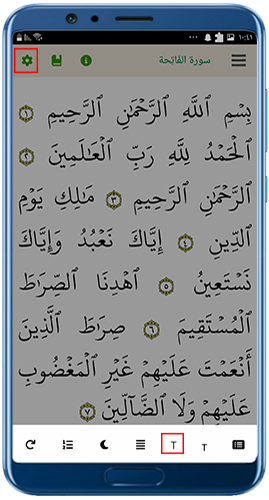 ١٠:٤١
سورة الفاتحة
بِسْمِ ٱللَّهِ ٱلرَّحْمَٰنِ ٱلرَّحِيمِ ١
ٱلْحَمْدُ لِلَّهِ رَبِّ ٱلْعَٰلَمِينَ ٢
ٱلرَّحْمَٰنِ ٱلرَّحِيمِ ٣ مَٰلِكِ يَوْمِ
ٱلدِّينِ ٤ إِيَّاكَ نَعْبُدُ وَإِيَّاكَ
نَسْتَعِينُ ٥ ٱهْدِنَا ٱلصِّرَٰطَ
ٱلْمُسْتَقِيمَ ٦ صِرَٰطَ ٱلَّذِينَ
أَنْعَمْتَ عَلَيْهِمْ غَيْرِ ٱلْمَغْضُوبِ
عَلَيْهِمْ وَلَا ٱلضَّآلِّينَ ٧
T T